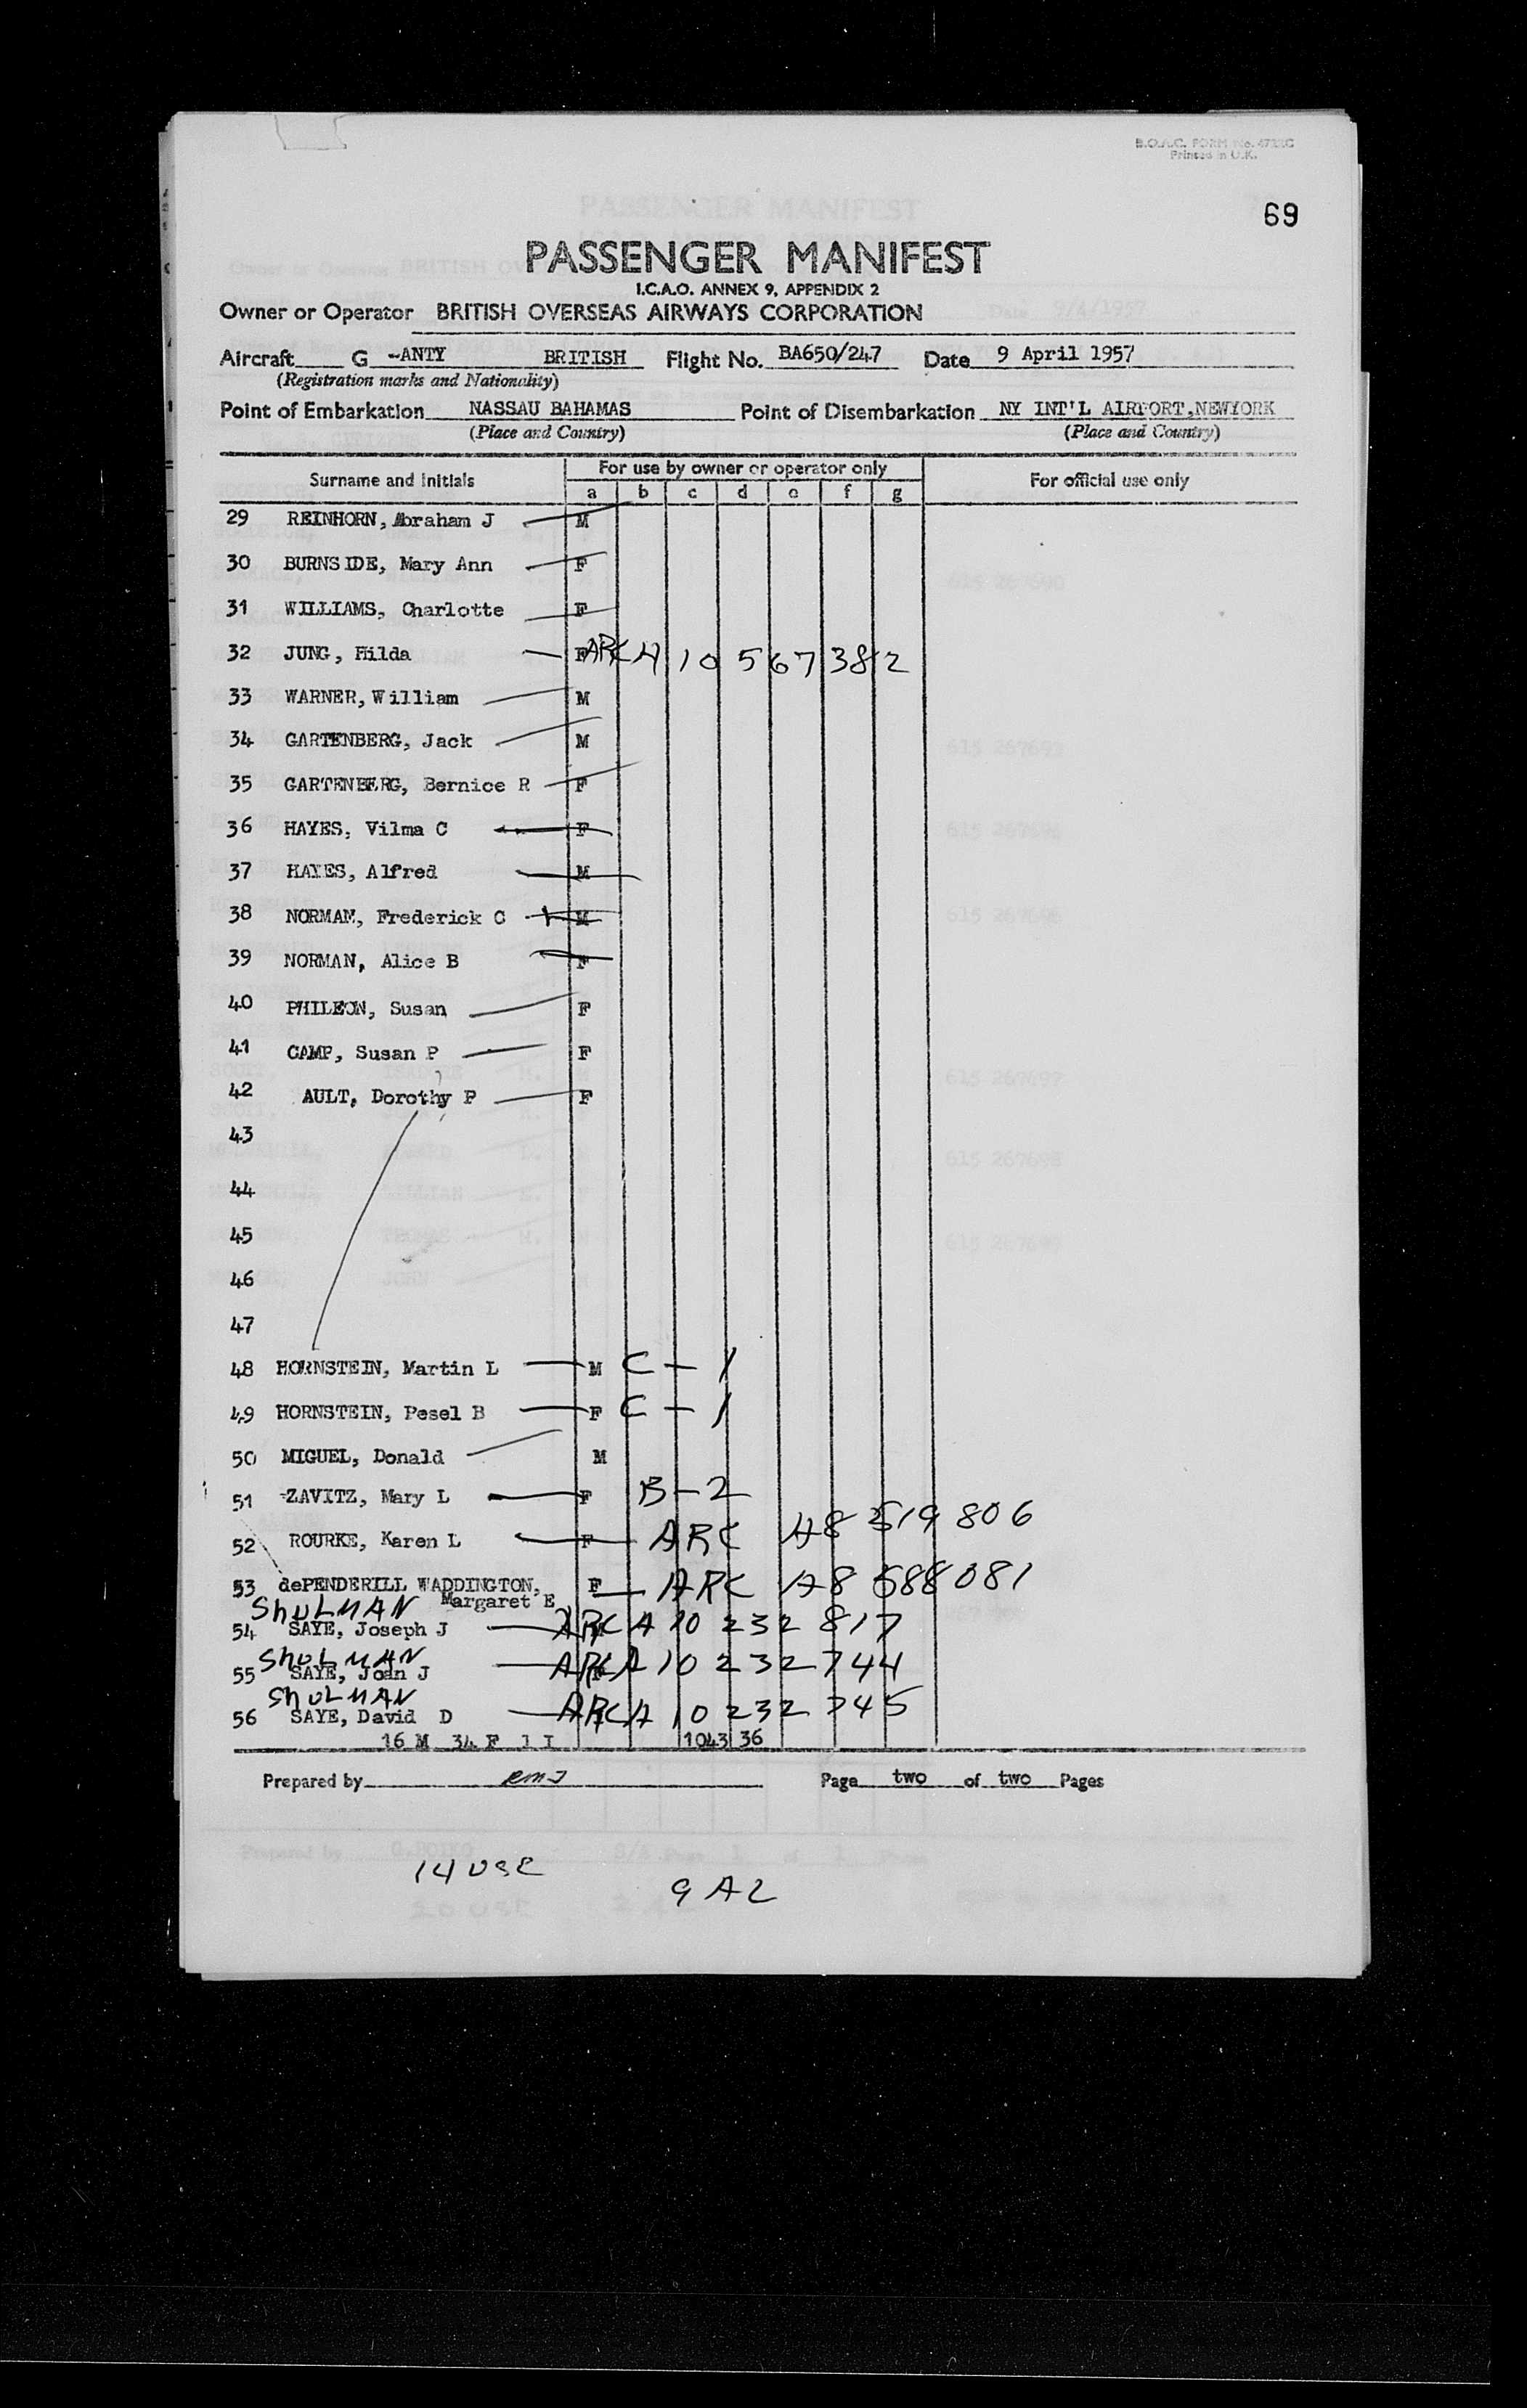 B.O.A.C. FORM No.
Printed in U.K.
69
PASSENGER MANIFEST
I.C.A.O. ANNEX 9, APPENDIX 2
Owner or Operator BRITISH OVERSEAS AIRWAYS CORPORATION
Aircraft G -ANTY BRITISH Flight No. BA650/247 Date 9 April 1957
(Registration marks and Nationality)
Point of Embarkation NASSAU BAHAMAS Point of Disembarkation NY INT'L AIRPORT,NEWYORK
(Place and Country) (Place and Country)
Surname and Initials For use by owner or operator only For official use only
a b c d e f g
29 REINHORN, Abraham J M
30 BURNSIDE, Mary Ann F
31 WILLIAMS, Charlotte F
32 JUNG, Hilda F ARC A 10 567 382
33 WARNER, William M
34 GARTENBERG, Jack M
35 GARTENBERG, Bernice R F
36 HAYES, Vilma C F
37 HAYES, Alfred M
38 NORMAN, Frederick C M
39 NORMAN, Alice B F
40 PHILEON, Susan F
41 CAMP, Susan P F
42 AULT, Dorothy P F
43
44
45
46
47
48 HORNSTEIN, Martin L M C - 1
49 HORNSTEIN, Pesel B F C - 1
50 MIGUEL, Donald M
51 ZAVITZ, Mary L F B - 2
52 ROURKE, Karen L F ARC A8 519 806
53 dePENDERILL WADDINGTON, F ARC A8 588 081
Margaret E
SHULMAN
54 SAYE, Joseph J ARC A 10 232 817
SHULMAN
55 SAYE, Joan J ARC A 10 232 744
SHULMAN
56 SAYE, David D ARC A 10 232 745
16 M 34 F 1 I 1043 36
Prepared by emj Page two of two Pages
14 USC
9 A2